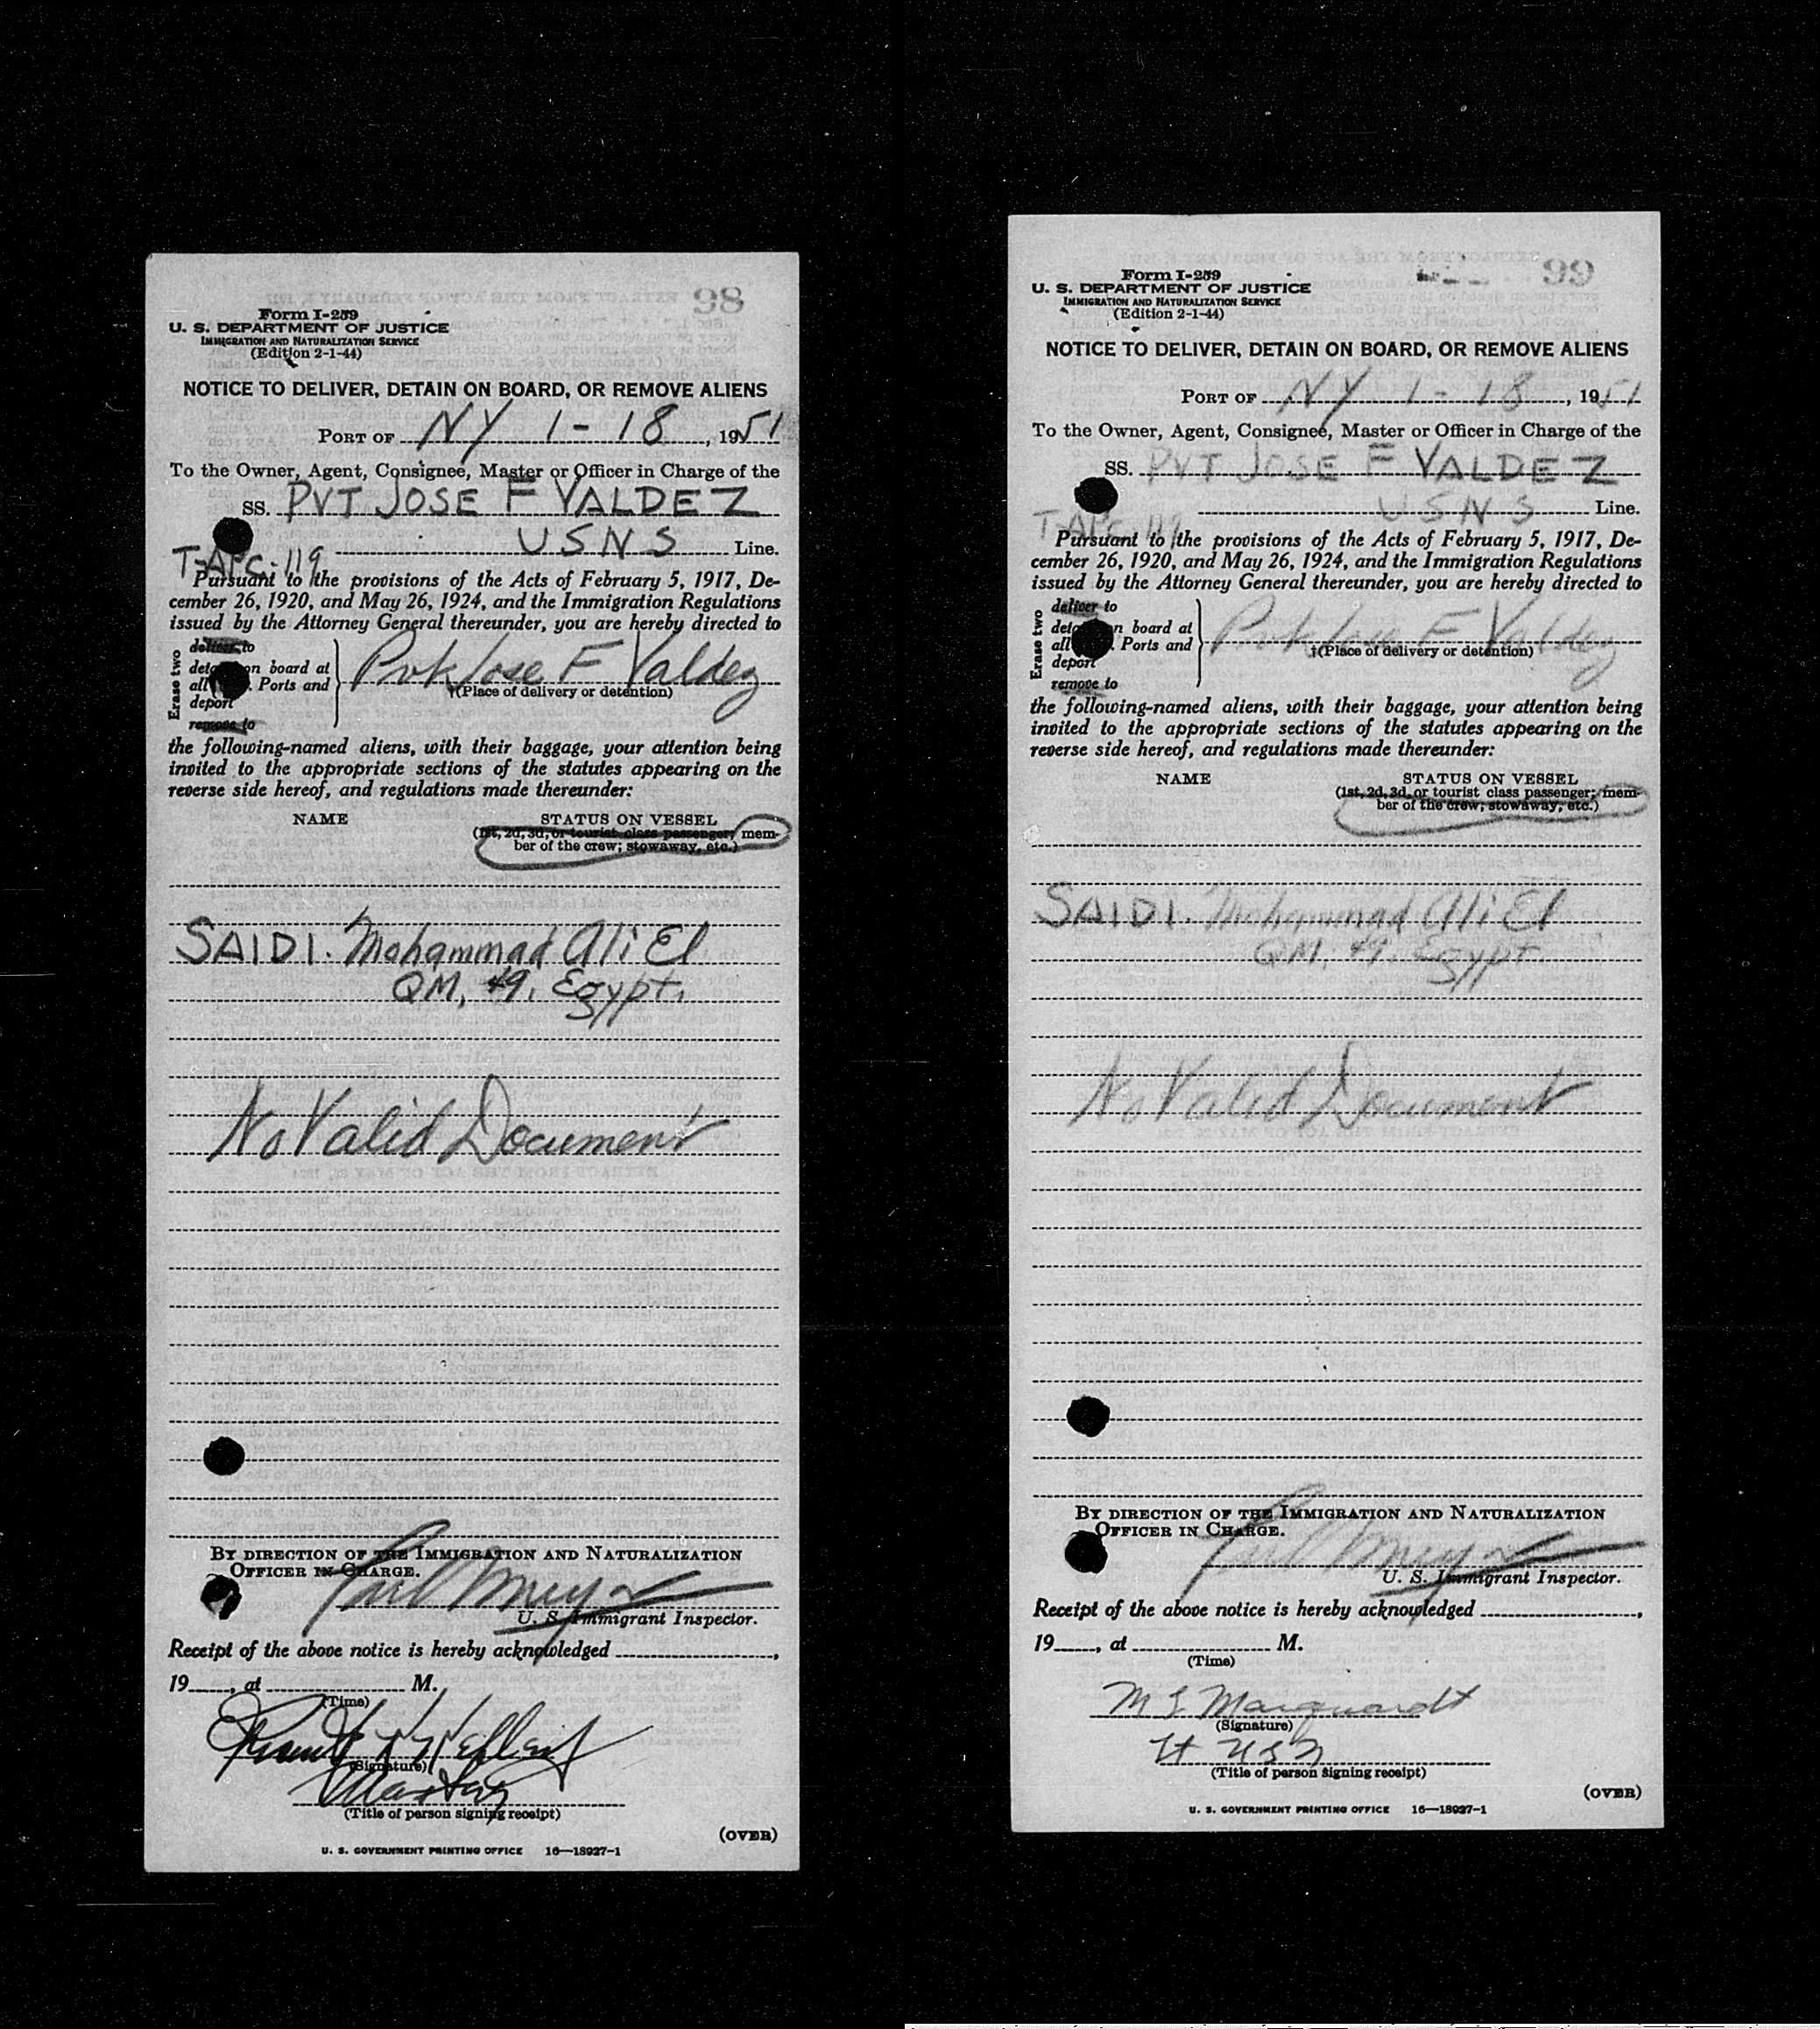 98
Form I-259
U. S. DEPARTMENT OF JUSTICE
IMMIGRATION AND NATURALIZATION SERVICE
(Edition 2-1-44)
NOTICE TO DELIVER, DETAIN ON BOARD, OR REMOVE ALIENS
PORT OF NY 1-18, 1951
To the Owner, Agent, Consignee, Master or Officer in Charge of the
SS. PVT JOSE F VALDEZ
USNS Line.
T-APC-119
Pursuant to the provisions of the Acts of February 5, 1917, De-
cember 26, 1920, and May 26, 1924, and the Immigration Regulations
issued by the Attorney General thereunder, you are hereby directed to
Erase two
deliver to
on board at
all Ports and
deport
remove to
Pvt Jose F Valdez
†(Place of delivery or detention)
the following-named aliens, with their baggage, your attention being
invited to the appropriate sections of the statutes appearing on the
reverse side hereof, and regulations made thereunder:
NAME STATUS ON VESSEL
(1st, 2d, 3d, or tourist class passenger; mem-
ber of the crew; stowaway, etc.)
SAIDI. Mohammad Ali El
QM, 49, Egypt.
No Valid Document
BY DIRECTION OF THE IMMIGRATION AND NATURALIZATION
OFFICER IN CHARGE.
U. S. Immigrant Inspector.
Receipt of the above notice is hereby acknowledged
19 , at M.
(Time)
(Signature)
Master
(Title of person signing receipt)
(OVER)
U. S. GOVERNMENT PRINTING OFFICE 16—18927-1
99
Form I-259
U. S. DEPARTMENT OF JUSTICE
IMMIGRATION AND NATURALIZATION SERVICE
(Edition 2-1-44)
NOTICE TO DELIVER, DETAIN ON BOARD, OR REMOVE ALIENS
PORT OF NY 1-18, 1951
To the Owner, Agent, Consignee, Master or Officer in Charge of the
SS. PVT JOSE F VALDEZ
USNS Line.
T-APC-119
Pursuant to the provisions of the Acts of February 5, 1917, De-
cember 26, 1920, and May 26, 1924, and the Immigration Regulations
issued by the Attorney General thereunder, you are hereby directed to
Erase two
deliver to
on board at
all Ports and
deport
remove to
Pvt Jose F Valdez
†(Place of delivery or detention)
the following-named aliens, with their baggage, your attention being
invited to the appropriate sections of the statutes appearing on the
reverse side hereof, and regulations made thereunder:
NAME STATUS ON VESSEL
(1st, 2d, 3d, or tourist class passenger; mem-
ber of the crew; stowaway, etc.)
SAIDI. Mohammad Ali El
QM, 49, Egypt.
No Valid Document
BY DIRECTION OF THE IMMIGRATION AND NATURALIZATION
OFFICER IN CHARGE.
U. S. Immigrant Inspector.
Receipt of the above notice is hereby acknowledged
19 , at M.
(Time)
Marquardt
(Signature)
Lt USN
(Title of person signing receipt)
(OVER)
U. S. GOVERNMENT PRINTING OFFICE 16—18927-1